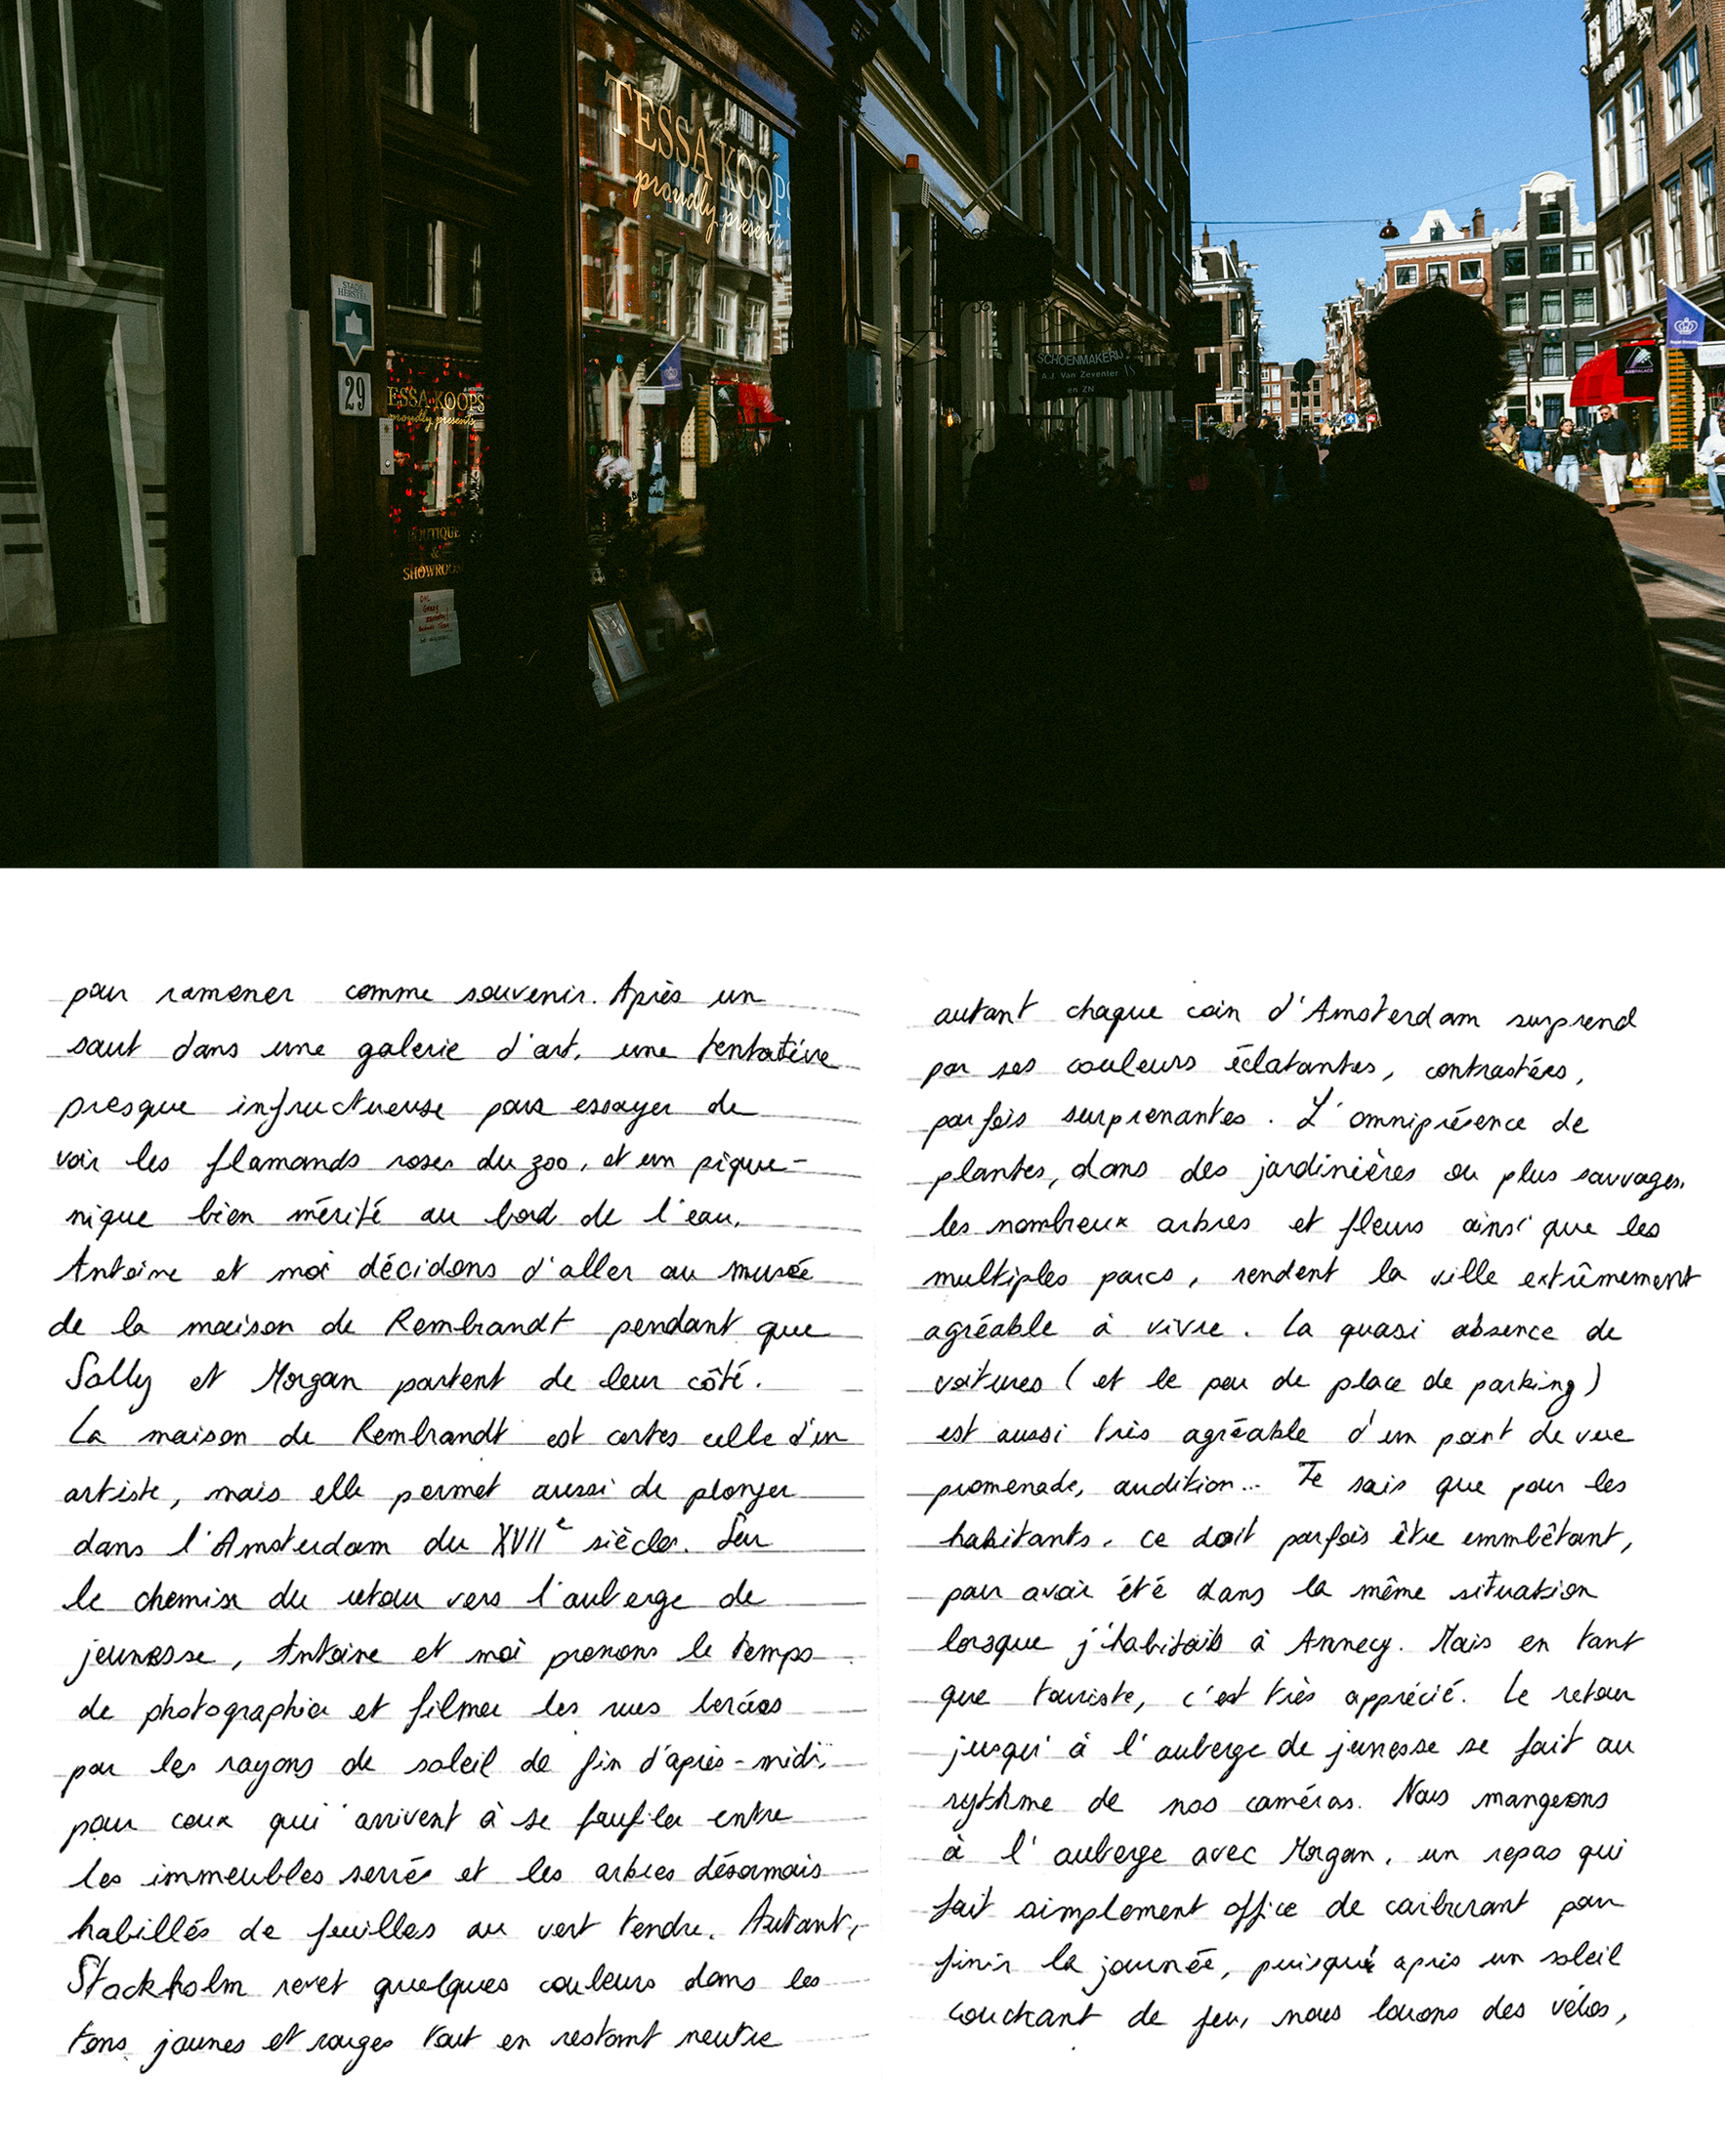 TESSA KOOPS
proudly presents
STADS
HERSTEL
29
ESSA KOOPS
proudly presents
BOUTIQUE
&
SHOWROOM
SCHOENMAKERIJ
A.J. Van Zeventer
en ZN
pour ramener comme souvenir. Après un
saut dans une galerie d'art, une tentative
presque infructueuse pour essayer de
voir les flamands roses du zoo, et un pique-
nique bien mérité au bord de l'eau,
Antoine et moi décidons d'aller au musée
de la maison de Rembrandt pendant que
Sally et Morgan partent de leur côté.
La maison de Rembrandt est certes celle d'un
artiste, mais elle permet aussi de plonger
dans l'Amsterdam du XVIIe siècle. Sur
le chemin du retour vers l'auberge de
jeunesse, Antoine et moi prenons le temps
de photographier et filmer les rues
par les rayons de soleil de fin d'après-midi,
pour ceux qui arrivent à se faufiler entre
les immeubles serrés et les arbres désormais
habillés de feuilles au vert tendre. Autant,
Stockholm revet quelques couleurs dans les
tons jaunes et rouges tout en restant neutre
autant chaque coin d'Amsterdam surprend
par ses couleurs éclatantes, contrastées,
parfois surprenantes. L'omniprésence de
plantes, dans des jardinières ou plus sauvages,
les nombreux arbres et fleurs ainsi que les
multiples parcs, rendent la ville extrêmement
agréable à vivre. La quasi absence de
voitures (et le peu de place de parking)
est aussi très agréable d'un point de vue
promenade, audition... Je sais que pour les
habitants, ce doit parfois être emmbêtant,
pour avoir été dans la même situation
lorsque j'habitais à Annecy. Mais en tant
que touriste, c'est très apprécié. Le retour
jusqu'à l'auberge de jeunesse se fait au
rythme de nos caméras. Nous mangeons
à l'auberge avec Morgan, un repas qui
fait simplement office de carburant pour
finir la journée, puisque après un soleil
couchant de feu, nous louons des vélos,